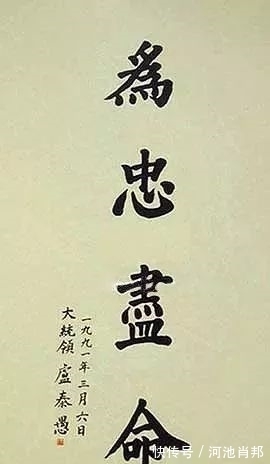 為忠盡命
一九九一年三月六日
大統領 盧泰愚
快传号 / 河池肖邦